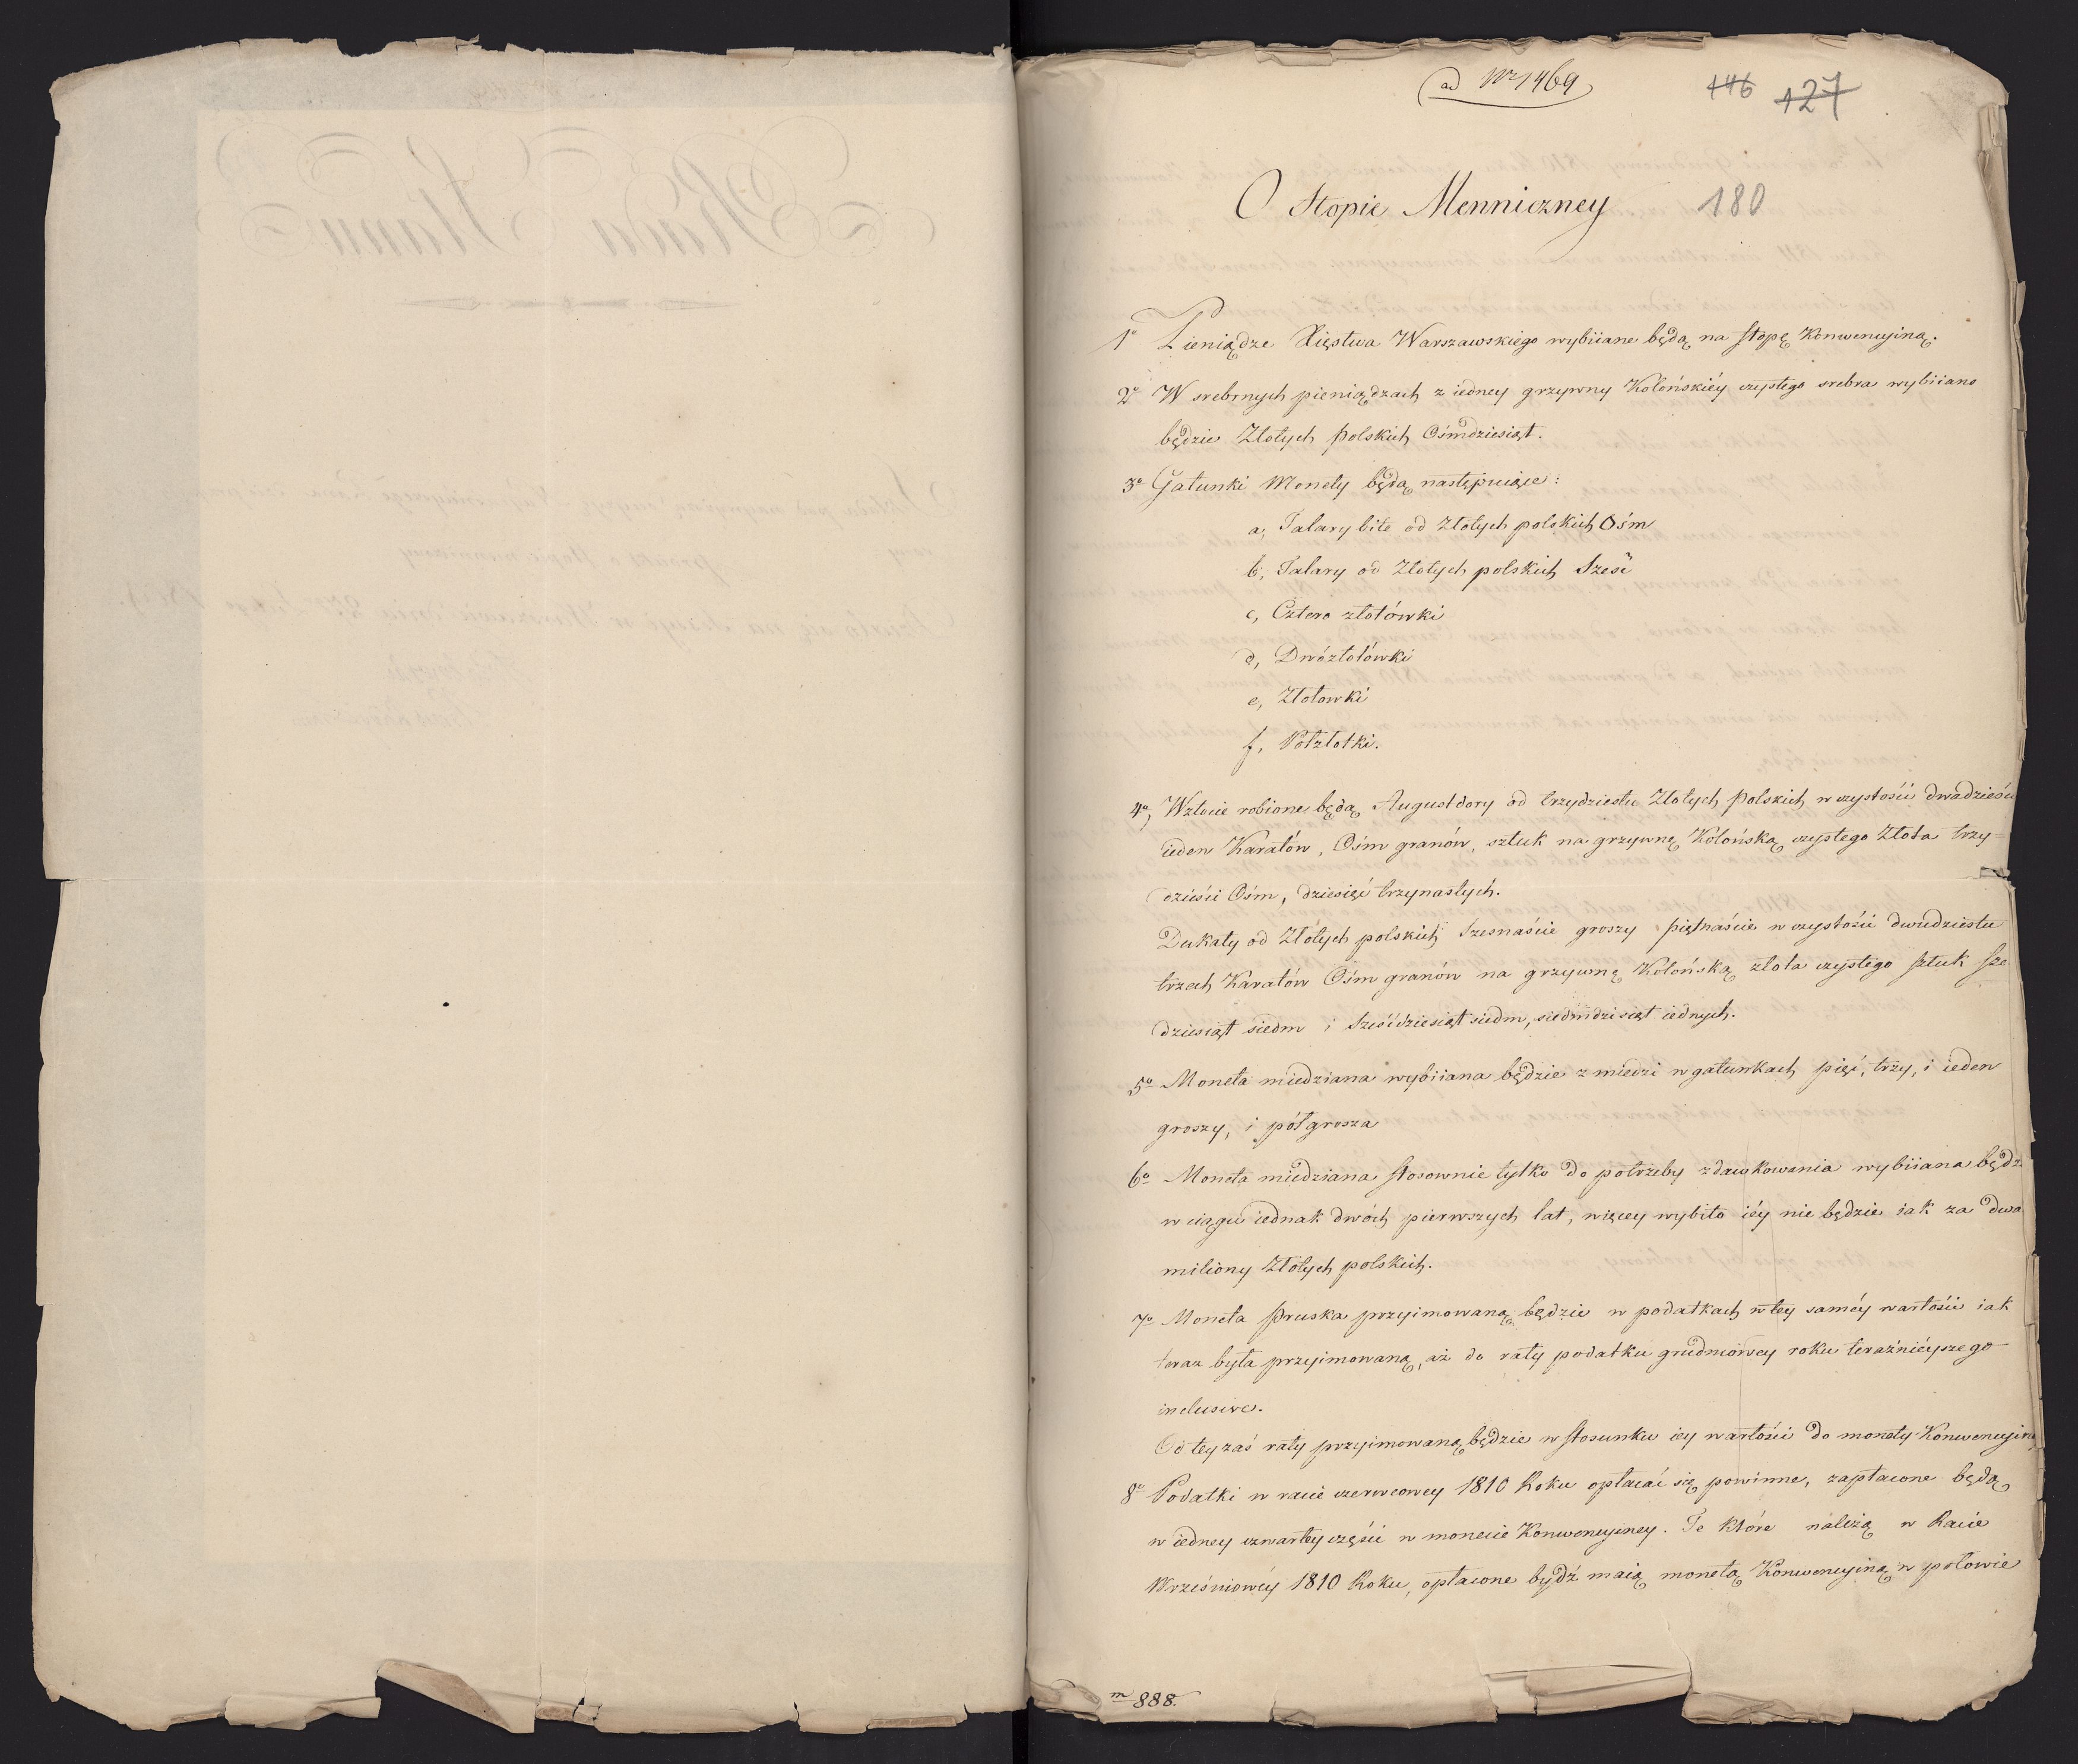 ad Nro 1469
146 127
O Stopie Menniczney 180
1o Pieniądze Xięstwa Warszawskiego wybiiane będą na stopę Konwencyiną.
2o W srebrnych pieniądzach z iedney grzywny Kolońskiéy czystego srebra wybiiano
będzie Złotych polskich Ośmdziesiąt.
3o Gatunki Monety będą następuiące:
a, Talary bite od złotych polskich Ośm
b, Talary od Złotych polskich Sześć
c, Cztero złotówki
d, Dwózłotówki
e, Złotowki
f, Półzłotki.
4o, W złocie robione będą Augustdory od trzydziestu Złotych Polskich w czystości dwadzieścia
ieden Karatów, Ośm granów, sztuk na grzywnę Kolońską czystego Złota trzy=
dzieści Ośm, dziesięć trzynastych.
Dukaty od Złotych polskich Szesnaście groszy piętnaście w czystości dwudziestu
trzech Karatów Ośm granów na grzywnę Kolońską złota czystego sztuk sze
dziesiąt siedm i Sześćdziesiąt siedm, siedmdziesiąt iednych.
5o Moneta miedziana wybiiana będzie z miedzi w gatunkach pięć, trzy, i ieden
groszy, i półgrosza
6o Moneta miedziana stosownie tylko do potrzeby zdawkowania wybiiana będz
w ciągu iednak dwóch pierwszych lat, więcey wybito iéy nie będzie iak za dwa
miliony Złotych polskich.
7o Moneta Pruska przyimowaną będzie w podatkach w tey saméy wartości iak
teraz była przyimowaną, aż do raty podatku grudniowey roku teraźnieyszego
inclusive.
Od tey zaś raty przyimowaną będzie w stosunku iey wartości do monety Konwencyiney
8o Podatki w racie czerwcowey 1810 Roku opłacać się powinne, zapłacone będą
w iedney czwartey części w monecie Konwencyiney. Te które należą w Racie
Wrześniowéy 1810 Roku, opłacone bydź maią monetą Konwencyiną w połowie
m 888.